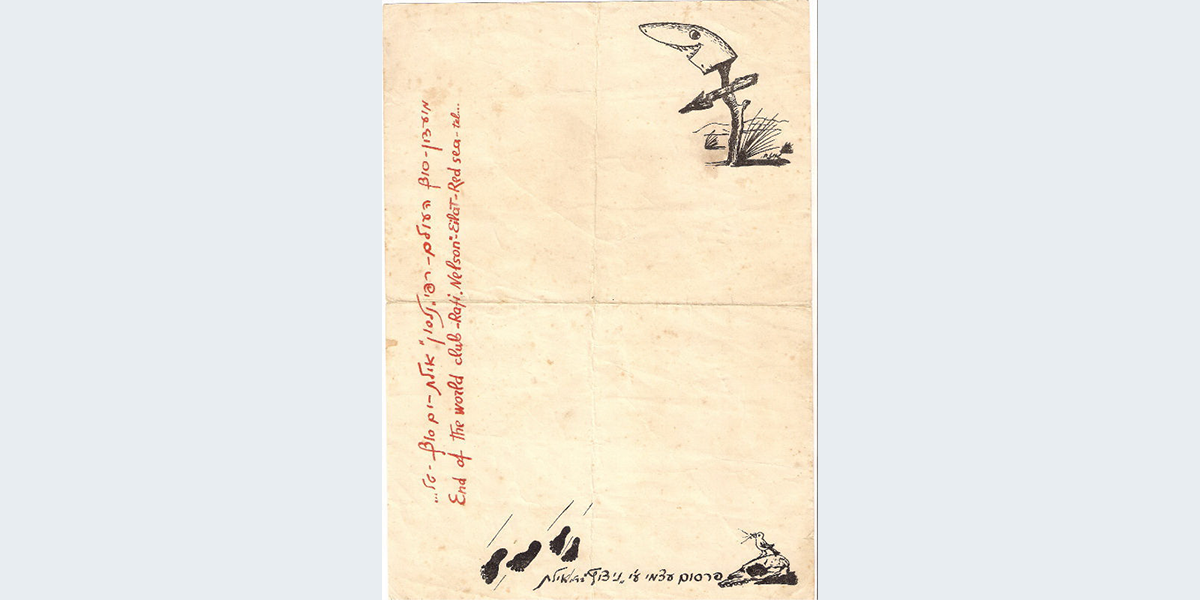 מועדון-סוף העולם-רפי "נלסון" אילת-ים סוף-טל...
End of the world club-Rafi "Nelson"-Eilat-Red sea-tel...
פרסום עצמי ע"י אילת